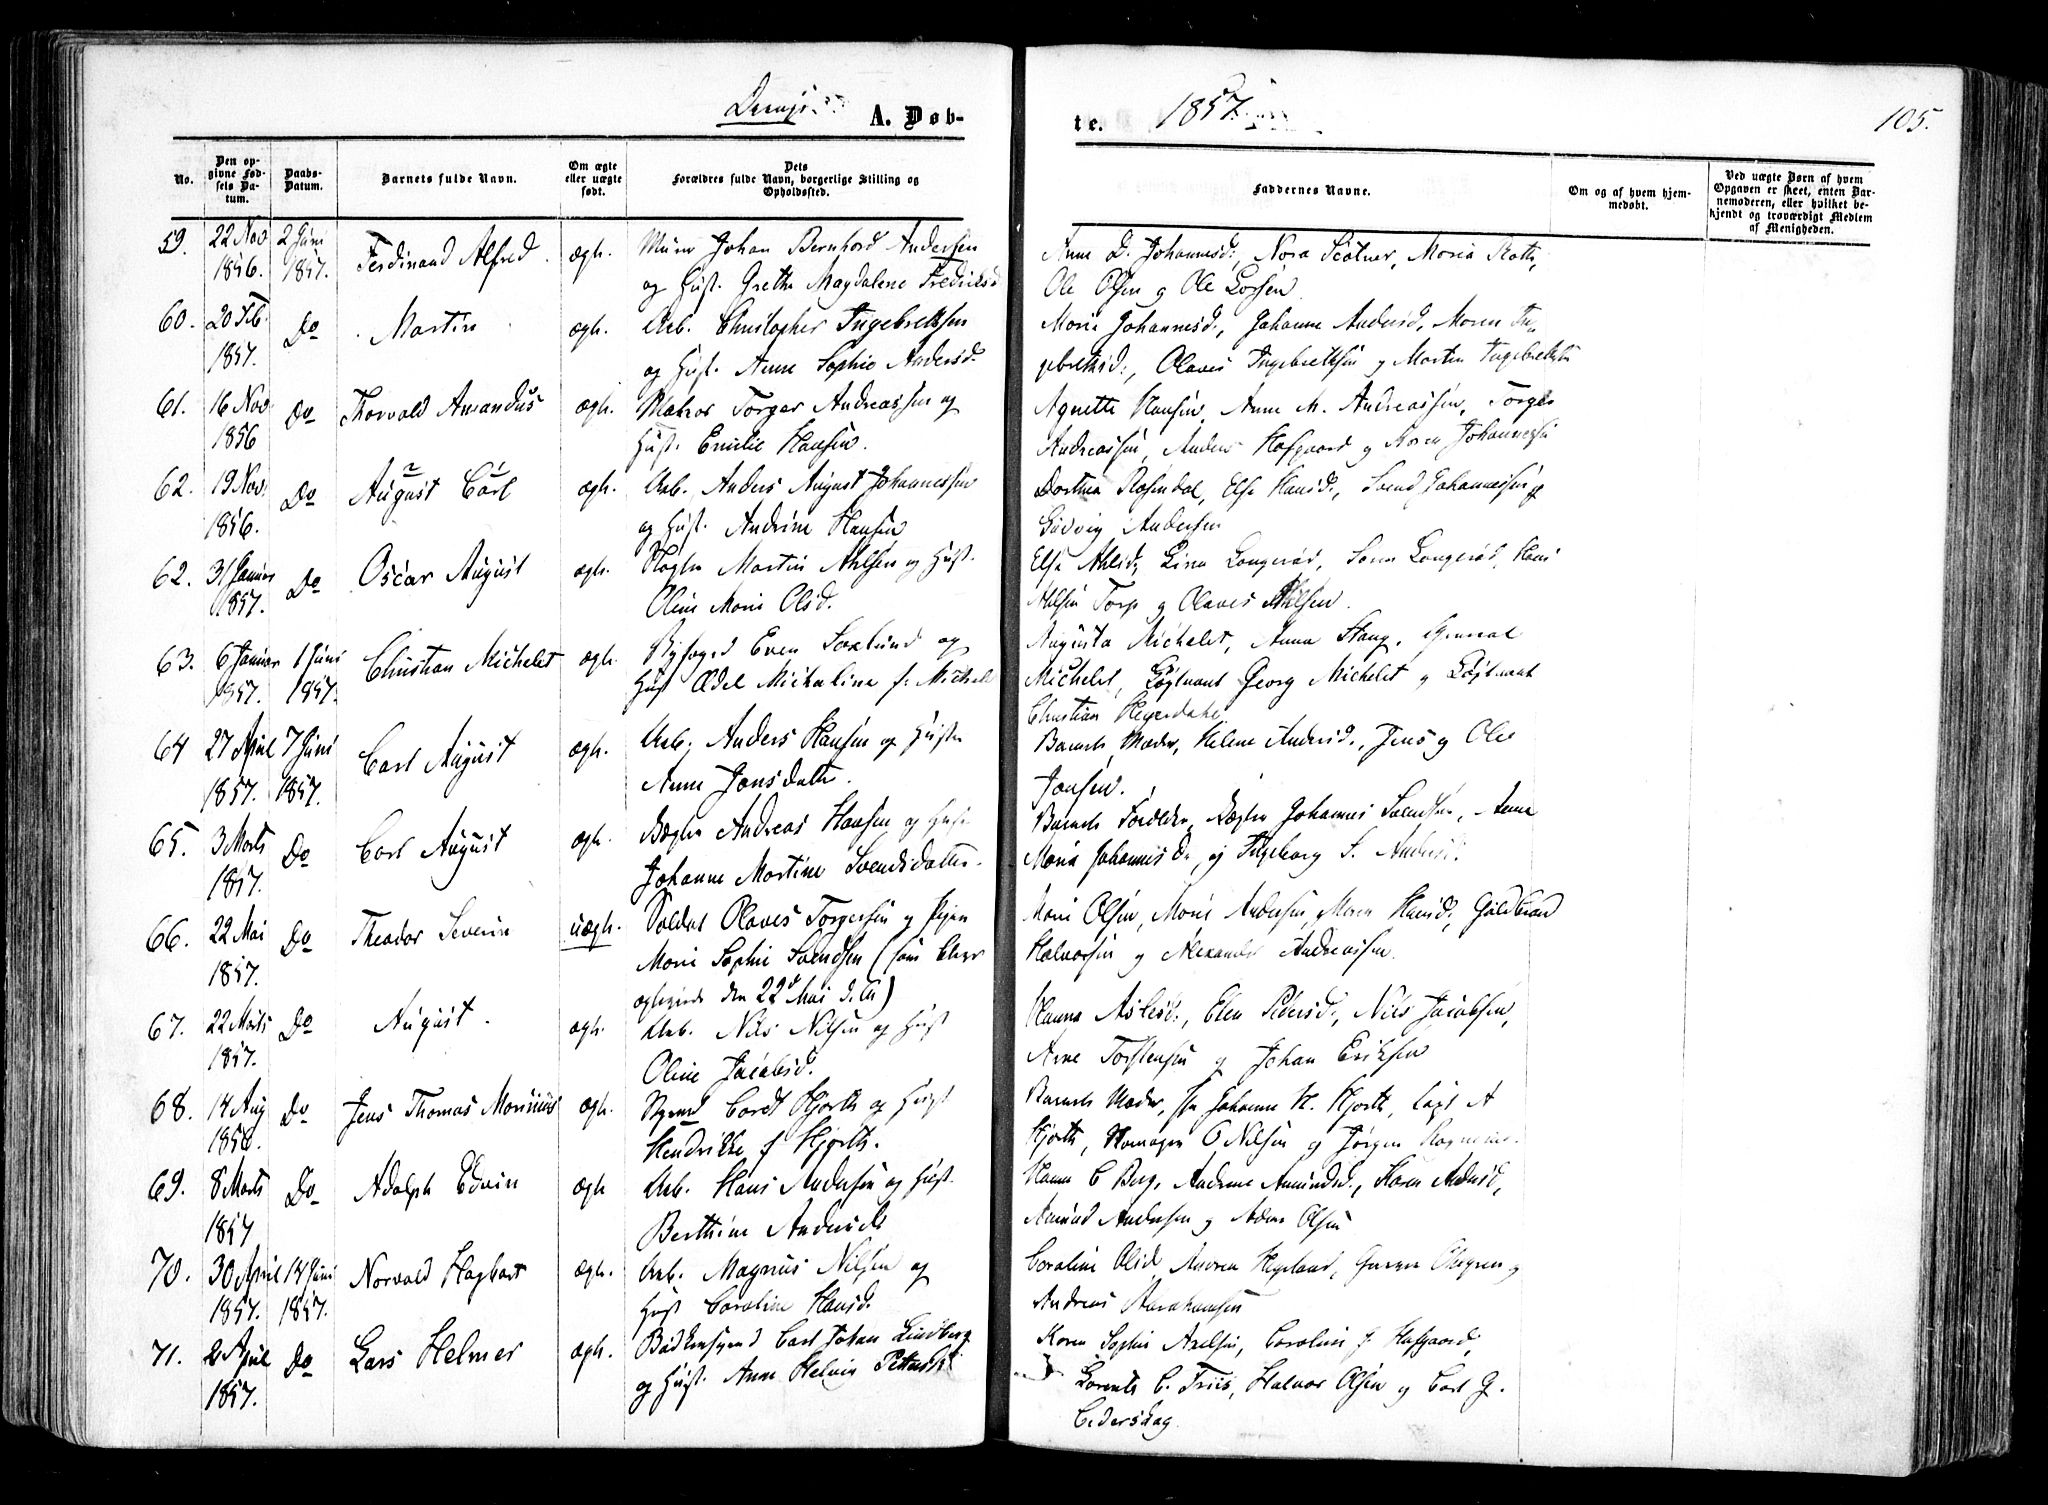 A. Døb-
te. 1857.
105.
No.
Den op-
givne Fød-
sels Da-
tum.
Daabs-
Datum.
Barnets fulde Navn.
Om ægte
eller uægte
født.
Dets
Forældres fulde Navn, borgerlige Stilling og
Opholdssted.
Faddernes Navne.
Om og af hvem hjem-
medøbt.
Ved uægte Børn af hvem
Opgaven er skeet, enten Bar-
nemoderen, eller hvilket be-
kjendt og troværdigt Medlem
af Menigheden.
59. 22 Nov 2 Juni Ferdinand Alfred. ægt. Murer Johan Bernhard Andersen
1856. 1857. og Hust. Grethe Magdalene Fredriksd
Anne D. Johannesd:, Nora Maria
Ole Olsen og Ole Larsen
60. 20 Feb. Do Martin ægt. Arb. Christopher Ingebretsen
1857. og Hust. Anne Sophie Andersd.
Maria Johannesd., Johanne Andersd, Maren In-
gebretsd:, Olaves Ingebretsen og Martin Ingebretsen
61. 16 Nov Do Thorvald Amandus ægt. Matros Torger Andreassen og
1856 Hust. Emilie Hansen.
Agnette Hansen, Anne M. Andreassen, Torger
Andreassen, Anders Hafgaard og Karen Johannesen
62. 19 Nov. Do August Carl ægt. Arb. Anders August Johannessen
1856. og Hust. Andrine Hansen
Dorthea Rosendal, Else Hansd:, Svend Johannessen og
Ludvig Andersen
62. 31 Januar Do Oscar August ægt. Martin Ahlsen og Hust.
1857. Oline Marie Olsd.
Else Ahlsd:, Lina Langerød, Søren Langerød, Hans
Ahlsen Torp og Olaves Ahlsen.
63. 6 Januar 1 Juni Christian Michelet ægt. Byfoged Even Saxlund og
1857. 1857. Hust Ædel Michaline f. Michelet
Augusta Michelet, Anna Stang, General
Michelet, Løjtnant Georg Michelet og Løjtnant
Christian Heyerdahl.
64 27 April 7 Juni Carl August ægt. Arb. Anders Hansen og Hustr
1857. 1857. Anne Jonsdatter.
Barnets Moder, Helene Andersd., Jens og Ole
Jonsen.
65. 3 Marts Do Carl August ægt. Andreas Hansen og Hust
1857. Johanne Martine Svendsdatter.
Barnets Forældre, Johannes Svendsen, Anne
Maria Johannesd. og Ingeborg S. Andersd.
66. 22 Mai Do Theodor Severin uægt. Soldat Olaves Torgersen og Pigen
1857. Marie Sophie Svendsen (som bleve
ægteviede den 22d Mai d. A.)
Marie Olsen, Marie Andersen, Maren Hansd., Guldbrand
Halvorsen og Alexander Andreassen.
67. 22 Marts Do August. ægt. Arb. Nils Nilsen og Hust
1857. Oline Jacobsd.
Hanna Aslesd., Elen Pedersd., Nils Jacobsen,
Arne Torstensen og Johan Eriksen
68. 14 Aug Do Jens Thomas Monsius ægt. Cordt Hjorth og Hust
1856. Hendrikke f Hjorth.
Barnets Moder, Johanne H. Hjorth, Capt A
Hjorth, O Nilsen og Jørgen
69. 8 Marts Do Adolph Edvin ægt Arb. Hans Andersen og Hust.
1857 Berthine Andersd
Hanna C Berg, Andrine Amundsd., Karen Andersd,
Amund Andersen og Adam Olsen
70. 30 April 14 Juni Norvald Hagbart ægt. Arb. Magnus Nilsen og
1857. 1857. Hust Caroline Hansd.
Caroline Olsd Andrea
Andreas Abrahamsen
71. 2 April Do Lars Helmer ægt. Bødkersvend Carl Johan Lindberg
1857. og Hust. Anne Helvine
Karen Sophie Axelsen, Caroline f. Hafgaard,
Lorents C. Friis, Halvor Olsen og Carl G.
Cederskag